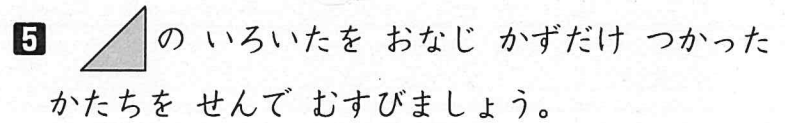 5 の いろいたを おなじ かずだけ つかった
かたちを せんで むすびましょう。